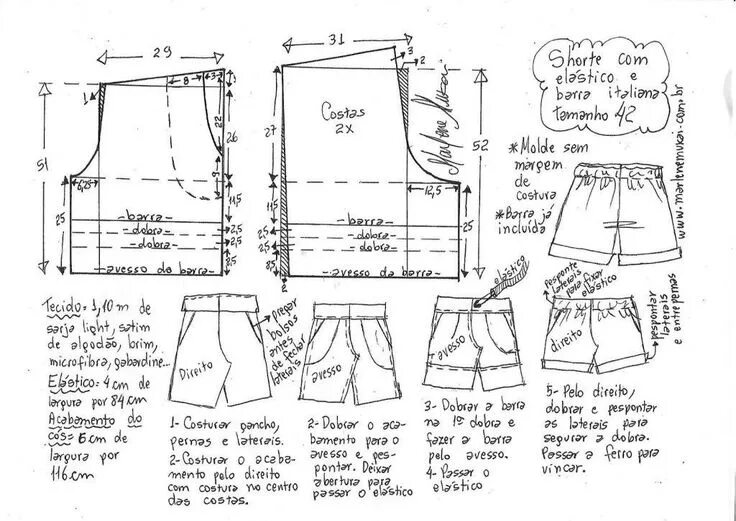 29
31
Shorte com
elástico e
barra italiana
tamanho 42
8
3
3
2
1
51
26
22
9
6,25
25
11,5
2,5
2,5
-barra-
-dobra-
-dobra-
avesso da barra-
Costas
2X
Marlene Mukai
27
52
12,5
11,5
25
2,5
2,5
8,5
2
-barra-
-dobra-
-dobra-
-avesso da barra-
*Molde sem
margem
de
costura
*Barra já
incluída
www.marlenemukai.com.br
Tecido= 1,10 m de
sarja light, satim
de algodão, brim,
microfibra, gabardine...
Elástico= 4 cm de
largura por 84 cm
Acabamento do
cós= 6 cm de
largura por
116 cm
Direito
pregar
bolsos
antes
de fechar
laterais
avesso
elástico
avesso
pesponte
laterais
para fixar
elástico
direito
pespontar
laterais
e entrepernas
1- Costurar gancho,
pernas e laterais.
2- Costurar o acaba-
mento pelo direito
com costura no centro
das costas.
2- Dobrar o aca-
bamento para o
avesso e pes-
pontar. Deixar
abertura para
passar o elástico
3- Dobrar a barra
na 1ª dobra e
fazer a barra
pelo avesso.
4- Passar o
elástico
5- Pelo direito,
dobrar e pespontar
as laterais para
segurar a dobra.
Passar a ferro para
vincar.